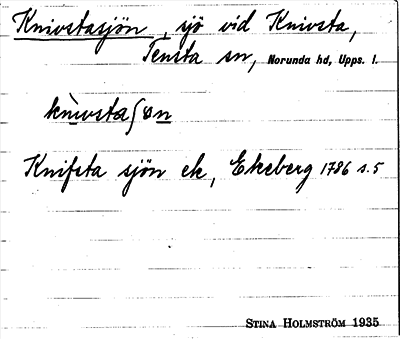 Knivstasjön, sjö vid Knivsta,
Tensta sn, Norunda hd, Upps. l.
knìvstaʃøn
Knifsta sjön ek, Ekeberg 1786 s. 5
STINA HOLMSTRÖM 1935